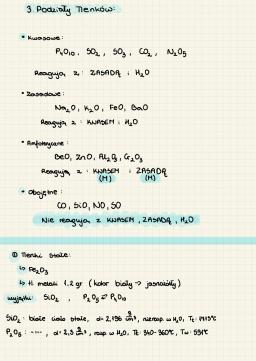 3. Podziały Tlenków:
• Kwasowe:
P₄O₁₀, SO₂, SO₃, CO₂, N₂O₅
Reagują z: ZASADĄ i H₂O
• Zasadowe:
Na₂O, K₂O, FeO, BaO
Reagują z: KWASEM i H₂O
• Amfoteryczne:
BeO, ZnO, Al₂O₃, Cr₂O₃
Reagują z: KWASEM i ZASADĄ
(M) (M)
• Obojętne:
CO, SiO, NO, SO
Nie reagują z KWASEM, ZASADĄ, H₂O
① Tlenki stałe:
↳ Fe₂O₃
↳ tl. metali 1,2 gr (kolor biały → jasnożółty)
wyjątki: SiO₂, P₂O₅ P₄O₁₀
SiO₂: białe ciało stałe, d= 2,196 g, nierozp. w H₂O, Tt: 1713°C
P₂O₅: -----, d= 2,3 g, rozp. w H₂O, Tt: 340-360°C, Tw: 591°C